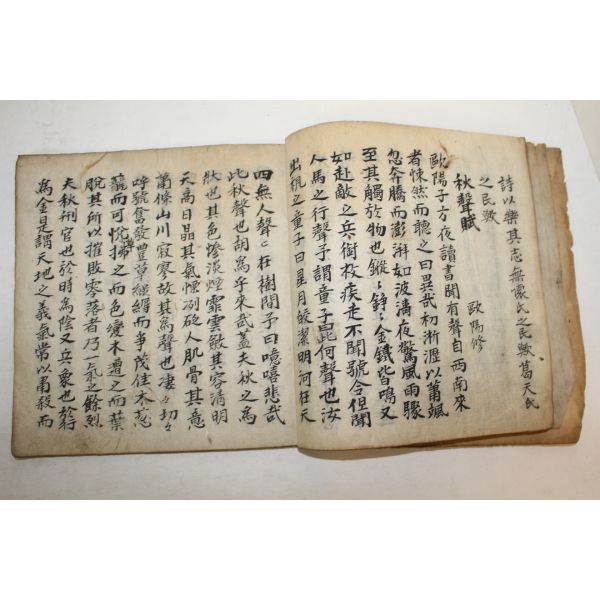 詩以樂其志無懷氏之民歟葛天氏
之民歟
秋聲賦　歐陽修
歐陽子方夜讀書聞有聲自西南來
者悚然而聽之曰異哉初淅瀝以蕭颯
忽奔騰而澎湃如波濤夜驚風雨驟
至其觸於物也鏦〻錚〻金鐵皆鳴又
如赴敵之兵銜枚疾走不聞號令但聞
人馬之行聲予謂童子此何聲也汝
出視之童子曰星月皎潔明河在天
四無人聲〻在樹間予曰噫嘻悲哉
此秋聲也胡爲乎來哉蓋夫秋之爲
狀也其色慘淡煙霏雲斂其容清明
天高日晶其氣慄冽砭人肌骨其意
蕭條山川寂寥故其爲聲也凄〻切〻
呼號奮發豐草綠縟而爭茂佳木葱
蘢而可悅草拂之而色變木遭之而葉
脫其所以摧敗零落者乃一氣之餘烈
夫秋刑官也於時爲陰又兵象也於行
爲金是謂天地之義氣常以肅殺而